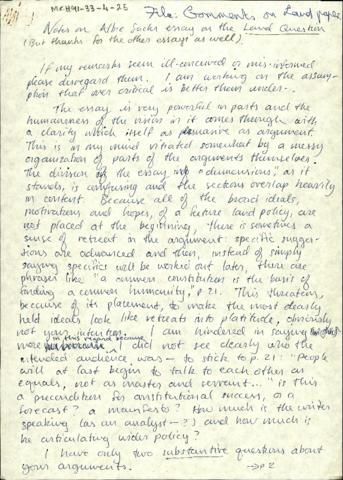 MCH91-33-4-25
File: Comments on Land paper
Notes on Albie Sachs essay on the Land Question
(But thanks for the other essays as well).
If my remarks seem ill-conceived or mis-informed
please disregard them. I am working on the assump-
tion that over critical is better than under-.
The essay is very powerful in parts and the
humaneness of the vision in it comes through with
a clarity which itself as persuasive as argument.
This is in my mind vitiated somewhat by a messy
organization of parts of the arguments themselves.
The division of the essay into "dimensions", as it
stands, is confusing and the sections overlap heavily
in content. Because all of the broad ideals,
motivations and hopes, of a future land policy, are
not placed at the beginning, there is sometimes a
sense of retreat in the argument: specific sugges-
sions are advanced and then, instead of simply
saying specifics will be worked out later, there are
phrases like "a common constitution is the basis of
finding a common humanity," p 21. This threatens,
because of its placement, to make the most dearly
held ideals look like retreat into platitude, obviously
not your intention. I am hindered in saying
more in this regard because I did not see clearly who the
intended audience was — to stick to p. 21: "People
will at last begin to talk to each other as
equals, not as master and servant..." is this
a precondition for constitutional success, or a
forecast? a manifesto? How much is the writer
speaking (as an analyst—?) and how much is
he articulating wider policy?
I have only two substantive questions about
your arguments. → p 2